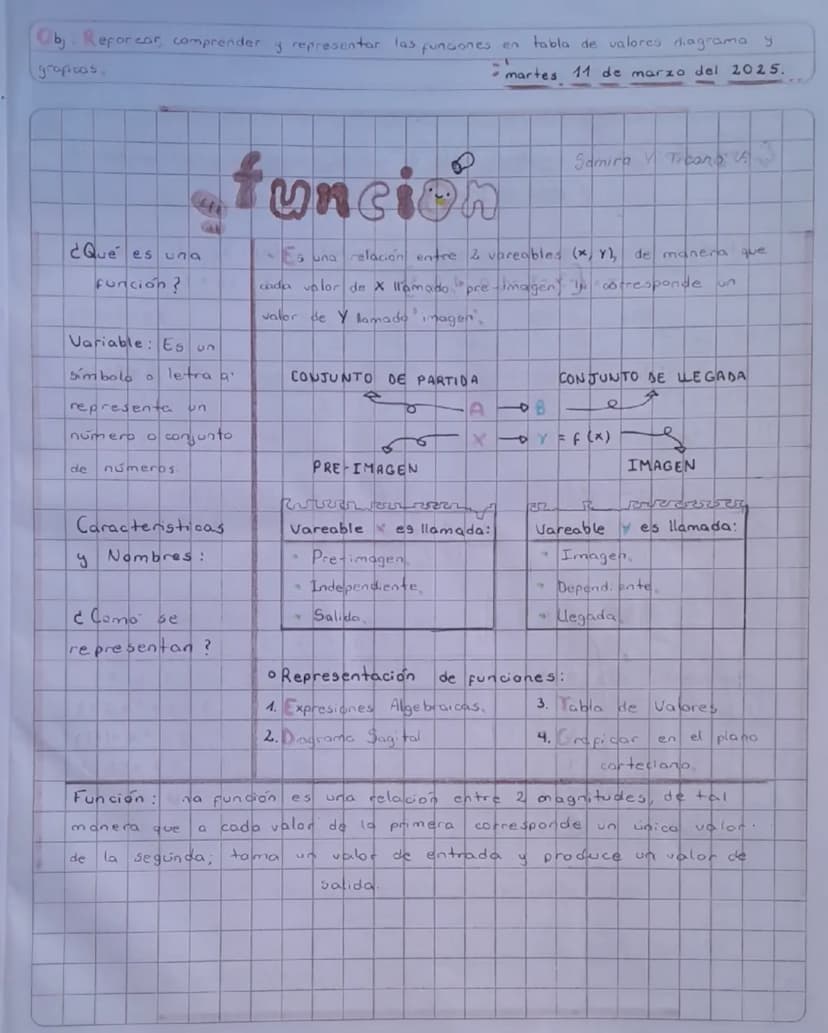 Obj: Reforzar, comprender y representar las funciones en tabla de valores diagrama y
graficos.
martes 11 de marzo del 2025.
Samira Y
función
¿Qué es una
función?
Es una relación entre 2 vareables (x, Y), de manera que
cada valor de X llamado "pre-Imagen" le corresponde un
valor de Y llamado "imagen".
Variable: Es un
símbolo o letra q'
representa un
número o conjunto
de números.
CONJUNTO DE PARTIDA
CONJUNTO DE LLEGADA
A → B
X → Y = f(x)
PRE-IMAGEN
IMAGEN
Caracteristicas
y Nombres:
Vareable X es llamada:
• Pre-imagen.
• Independiente.
• Salida.
Vareable Y es llamada:
• Imagen.
• Dependiente.
• Llegada.
¿Como se
representan?
Representación de funciones:
1. Expresiones Algebraicas.
2. Diagrama Sagital
3. Tabla de Valores
4. Graficar en el plano
carteciano.
Función: Una función es una relación entre 2 magnitudes, de tal
manera que a cada valor de la primera corresponde un único valor
de la segunda; toma un valor de entrada y produce un valor de
salida.